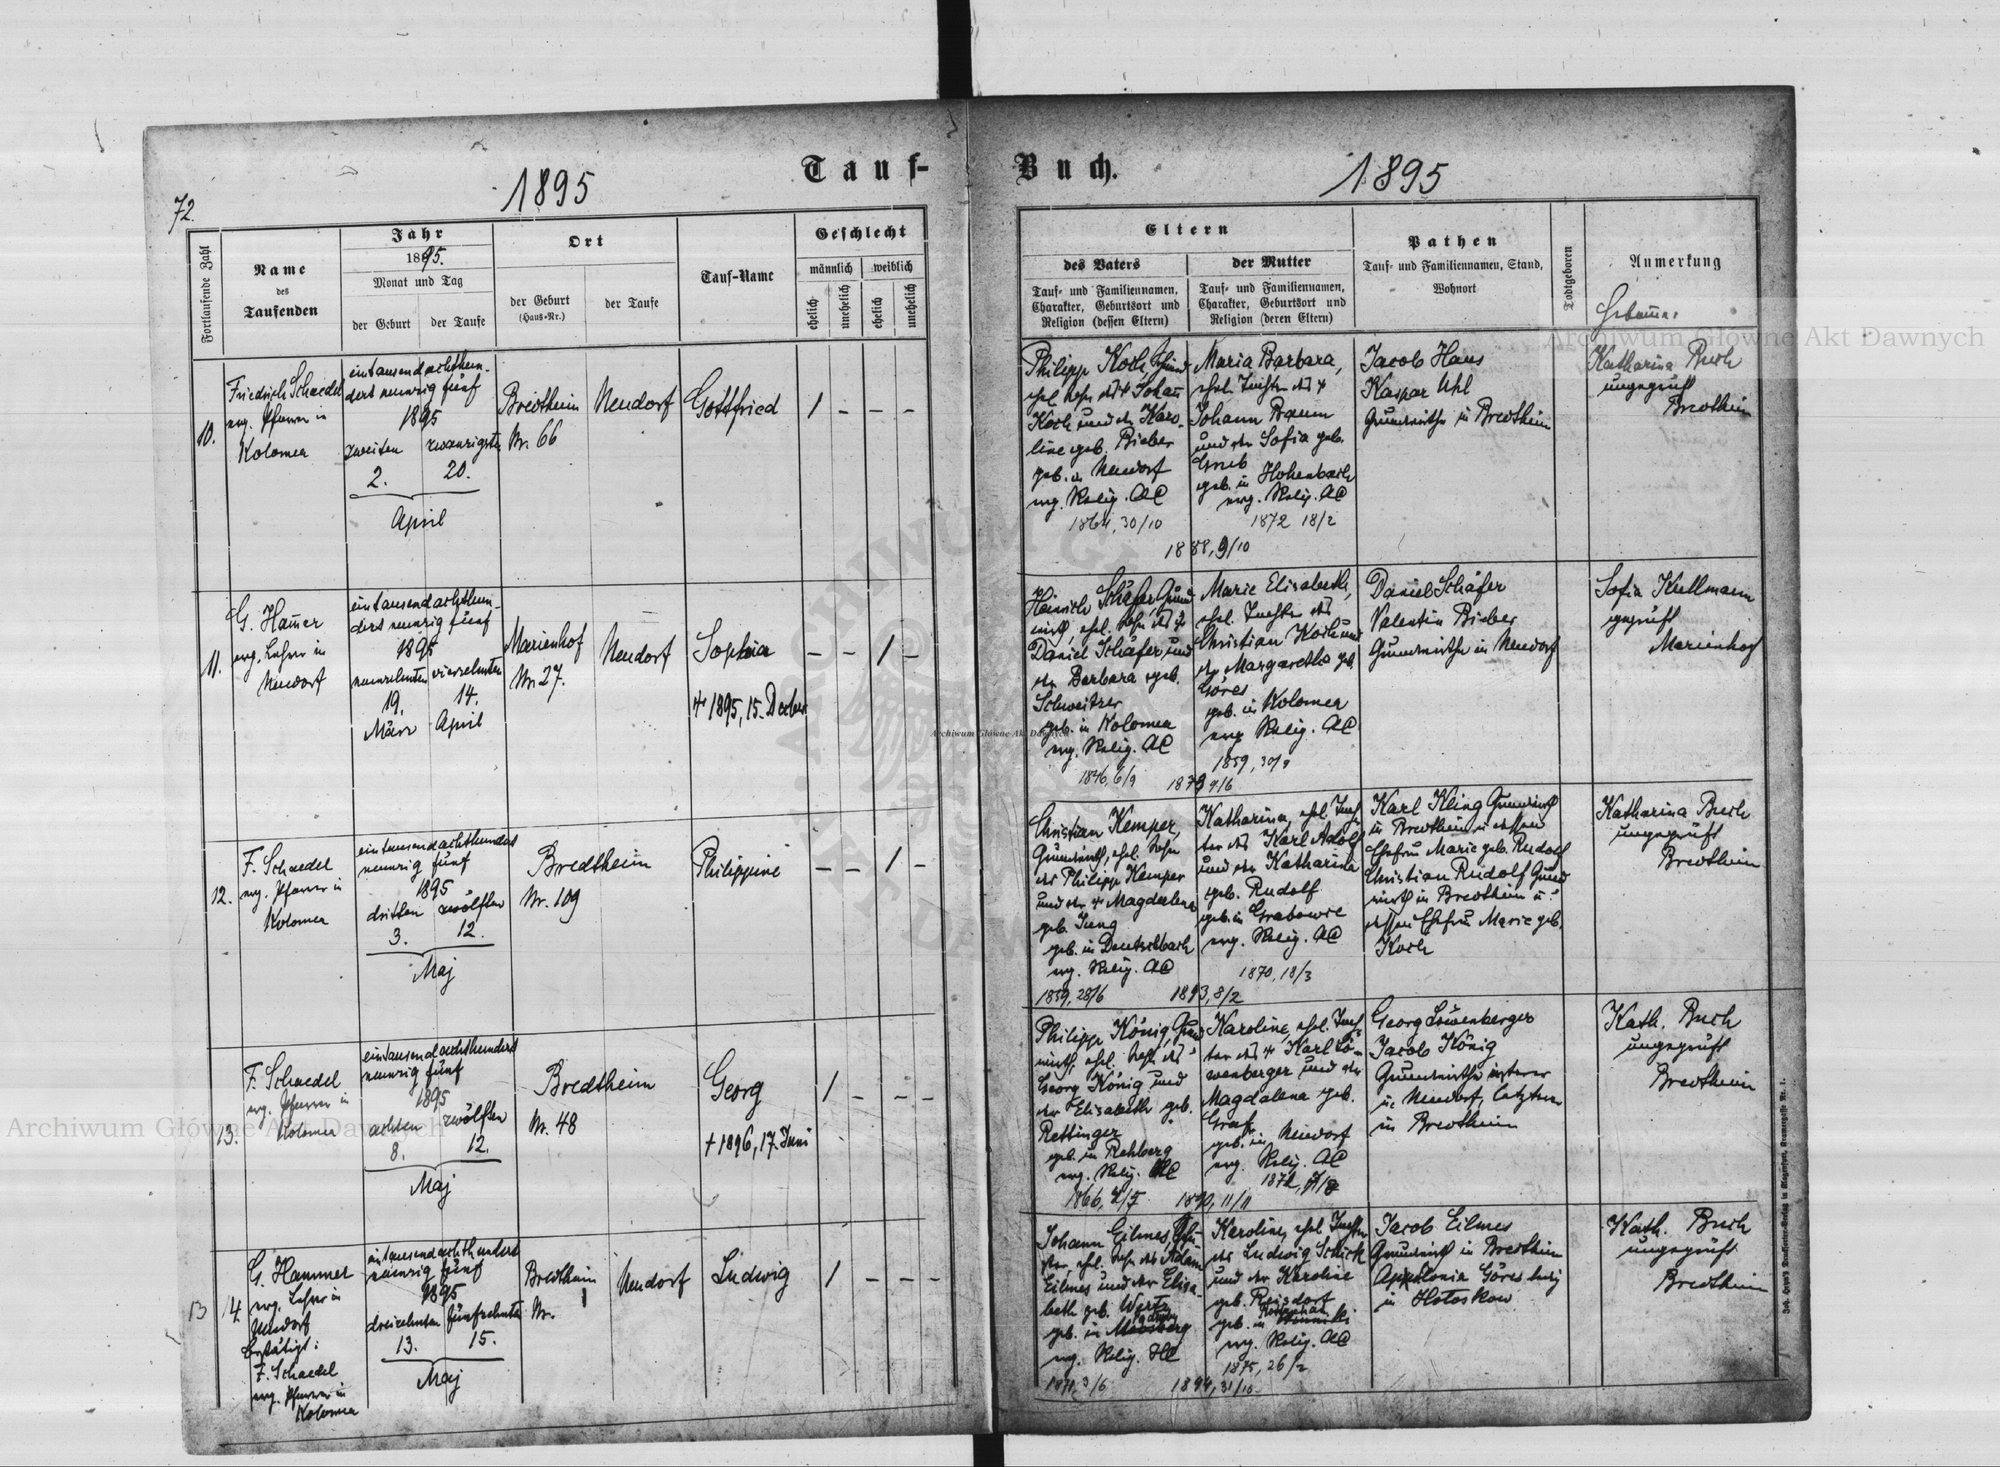 72.
1895
Tauf-
Buch.
1895
Fortlaufende Zahl
Name
des
Taufenden
Jahr
1895.
Monat und Tag
der Geburt
der Taufe
Ort
der Geburt
(Haus-Nr.)
der Taufe
Tauf-Name
Geschlecht
männlich
weiblich
ehelich
unehelich
ehelich
unehelich
Eltern
des Vaters
Tauf- und Familiennamen,
Charakter, Geburtsort und
Religion (dessen Eltern)
der Mutter
Tauf- und Familiennamen,
Charakter, Geburtsort und
Religion (deren Eltern)
Pathen
Tauf- und Familiennamen, Stand,
Wohnort
Todtgeboren
Anmerkung
10.
Friedrich Schaedel
evg. Pfarrer in
Kolomea
eintausendachthun-
dert neunzig fünf
1895
zweiten zwanzigsten
2. 20.
April
Bredtheim
Nr. 66
Neudorf
Gottfried
1 - - -
Philipp Koch,
ehel. Sohn des † Johann
Koch und der Karo-
line geb. Bieber
geb. in Neudorf
evg. Relig. AC
1864, 30/10
Maria Barbara,
ehel. Tochter des †
Johann Baum
und der Sofia geb.
Grub
geb. in Hohenbach
evg. Relig. AC
1872 18/2
1888, 9/10
Jacob Haus
Kaspar Uhl
Grundwirthe in Bredtheim
Katharina Buch
ungeprüft
Bredtheim
11.
G. Hammer
evg. Lehrer in
Neudorf
eintausendachthun-
dert neunzig fünf
1895
neunzehnten vierzehnten
19. 14.
März April
Marienhof
Nr. 27.
Neudorf
Sophia
† 1895, 15. Dezber
- - 1 -
Heinrich Schäfer, Grund
wirth, ehel. Sohn des †
Daniel Schäfer, und
der Barbara geb.
Schweitzer
geb. in Kolomea
evg. Relig. AC
1846, 6/9
Marie Elisabeth,
ehel. Tochter des
Christian Koch und
der Margaretha geb.
Göres
geb. in Kolomea
evg. Relig. AC
1859, 30/9
Daniel Schäfer
Valentin Bieber
Grundwirthe in Neudorf
Sofia Kullmann
geprüft
Marienhof
12.
F. Schaedel
evg. Pfarrer in
Kolomea
eintausendachthundert
neunzig fünf
1895
dritten zwölften
3. 12.
Maj
Bredtheim
Nr. 109
Philippine
- - 1 -
Christian Kemper,
Grundwirth, ehel. Sohn
des Philipp Kemper
und der † Magdalena
geb. Jung
geb. in Deutschbach
evg. Relig. AC
1859, 28/6
Katharina, ehel. Toch-
ter des Karl Adolf
und der Katharina
geb. Rudolf
geb. in Grabowce
evg. Relig. AC
1870, 18/3
1893, 8/2
Karl Kling Grundwirth
in Bredtheim u. dessen
Ehefrau Marie geb. Rudolf
Christian Rudolf Grund
wirth in Bredtheim u.
dessen Ehefrau Marie geb.
Koch
Katharina Buch
ungeprüft
Bredtheim
13.
F. Schaedel
evg. Pfarrer in
Kolomea
eintausendachthundert
neunzig fünf
1895
achten zwölften
8. 12.
Maj
Bredtheim
Nr. 48
Georg
† 1896, 17. Juni
1 - - -
Philipp König, Grund
wirth, ehel. Sohn des
Georg König und
der Elisabeth geb.
Rettinger
geb. in Rehberg
evg. Relig.
Karoline, ehel. Toch-
ter des † Karl Lö-
wenberger und der
Magdalena geb.
Graf
geb. in Neudorf
evg. Relig. AC
1890, 11/11
Georg Löwenberger
Jacob König
Grundwirthe ersterer
in Neudorf, letzterer
in Bredtheim
Kath. Buch
ungeprüft
Bredtheim
13 14
G. Hammer
evg. Lehrer in
Neudorf
bestätigt:
F. Schaedel
evg. Pfarrer in
Kolomea
eintausendachthundert
neunzig fünf
1895
dreizehnten fünfzehnten
13. 15.
Maj
Bredtheim
Nr.
Neudorf
Ludwig
1 - - -
Johann Eilmes,
ehel. Sohn des Adam
Eilmes und der Elisa-
beth geb. Wertz
geb. in
evg. Relig. HC
Karoline, ehel. Tochter
des Ludwig Schick
und der Karoline
geb. Reisdorf
geb. in
evg. Relig. AC
1875, 26/2
1894, 31/10
Jacob Eilmes
Grundwirth in Bredtheim
Appolonia Göres ledig
in Hotoskow
Kath. Buch
ungeprüft
Bredtheim
Archiwum Główne Akt Dawnych
Archiwum Główne Akt Dawnych
Archiwum Główne Akt Dawnych